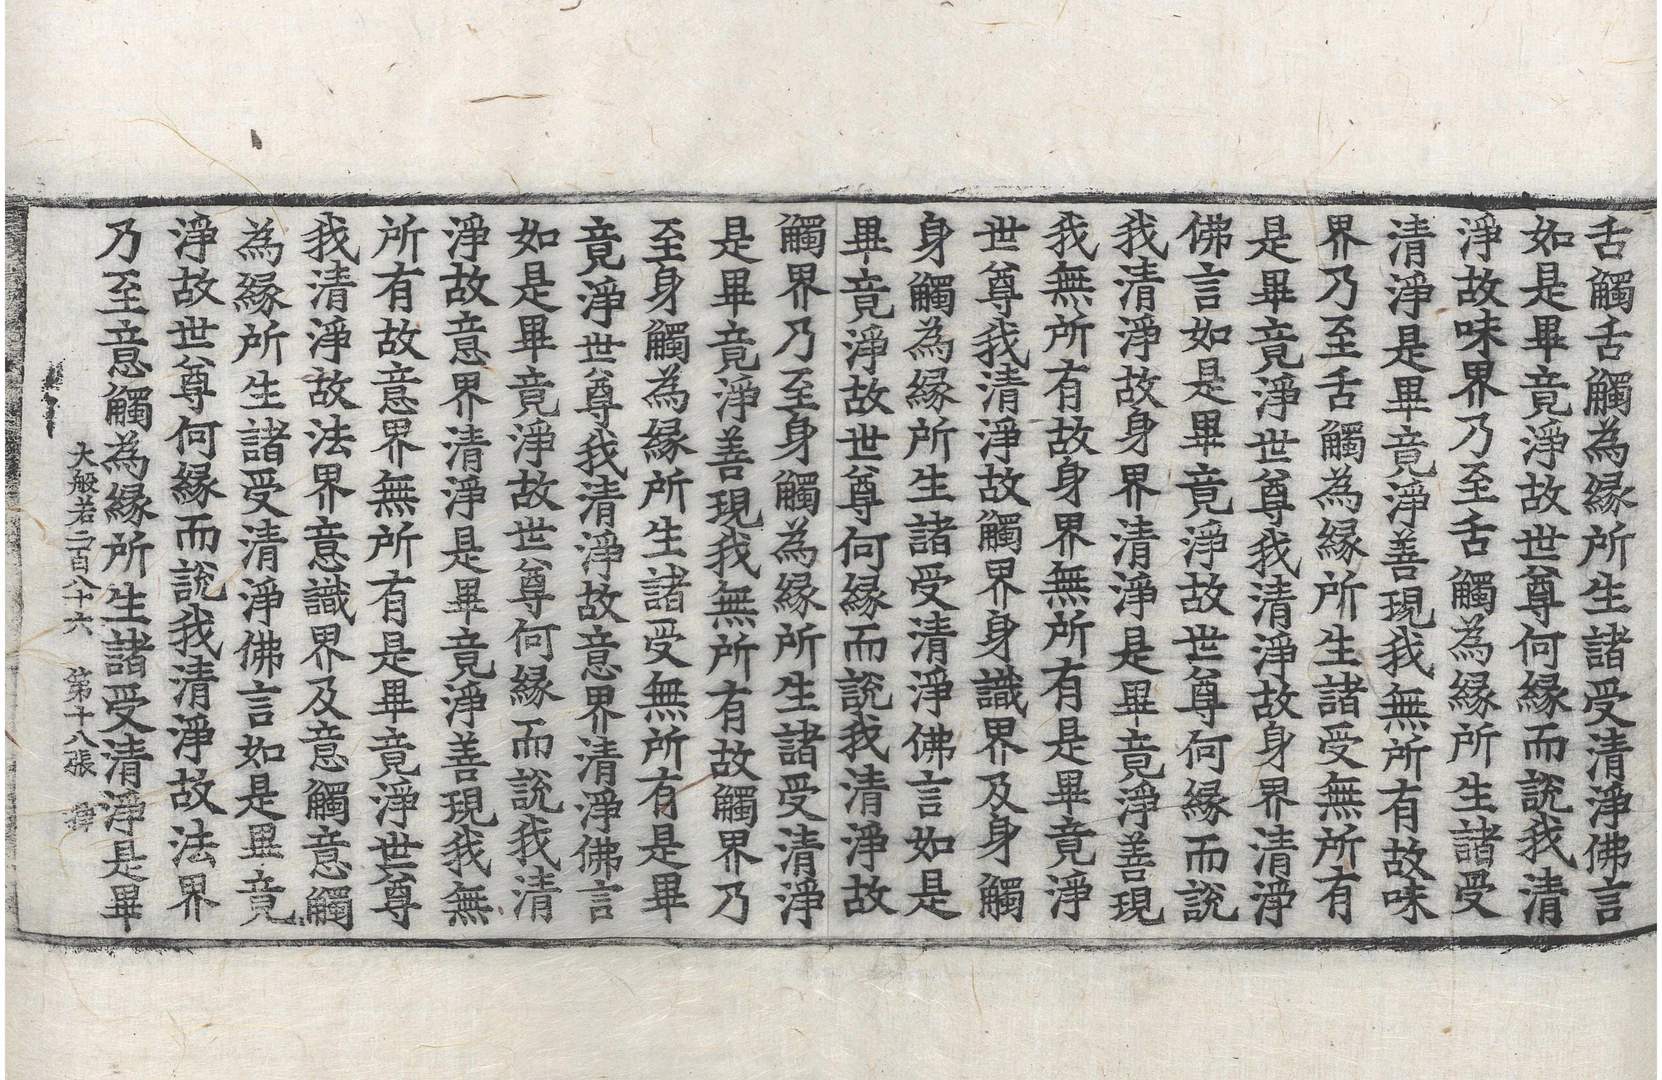 舌觸舌觸為縁所生諸受清淨佛言
如是畢竟淨故世尊何縁而說我清
淨故味界乃至舌觸為縁所生諸受
清淨是畢竟淨善現我無所有故味
界乃至舌觸為縁所生諸受無所有
是畢竟淨世尊我清淨故身界清淨
佛言如是畢竟淨故世尊何縁而說
我清淨故身界清淨是畢竟淨善現
我無所有故身界無所有是畢竟淨
世尊我清淨故觸界身識界及身觸
身觸為縁所生諸受清淨佛言如是
畢竟淨故世尊何縁而說我清淨故
觸界乃至身觸為縁所生諸受清淨
是畢竟淨善現我無所有故觸界乃
至身觸為縁所生諸受無所有是畢
竟淨世尊我清淨故意界清淨佛言
如是畢竟淨故世尊何縁而說我清
淨故意界清淨是畢竟淨善現我無
所有故意界無所有是畢竟淨世尊
我清淨故法界意識界及意觸意觸
為縁所生諸受清淨佛言如是畢竟
淨故世尊何縁而說我清淨故法界
乃至意觸為縁所生諸受清淨是畢
大般若二百八十六 第十八張